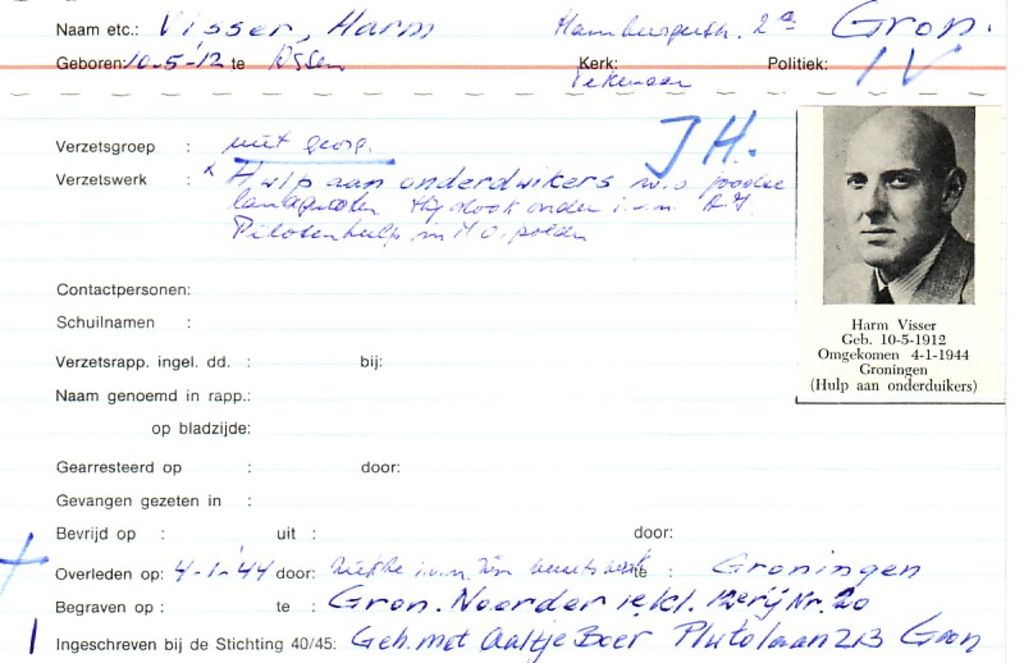 Naam etc.: Visser, Harm Hamburgerstr. 2a Gron.
Geboren: 10-5-12 te Assen Kerk: Politiek: IV
Tekenaar
Verzetsgroep : niet georg. J H.
Verzetswerk : x Hulp aan onderduikers w.o. joodse
landgenoten Hij dook onder i.v.m.
Pilotenhulp in N O. polder
Contactpersonen:
Schuilnamen :
Verzetsrapp. ingel. dd. : bij:
Naam genoemd in rapp.:
op bladzijde:
Gearresteerd op : door:
Gevangen gezeten in :
Bevrijd op : uit : door:
Overleden op: 4-1-'44 door: ziekte i.v.m. zijn te : Groningen
Begraven op : te : Gron. Noorder 1e kl. 12e rij Nr. 20
Ingeschreven bij de Stichting 40/45: Geh. met Aaltje Boer Plutolaan Gron
Harm Visser
Geb. 10-5-1912
Omgekomen 4-1-1944
Groningen
(Hulp aan onderduikers)